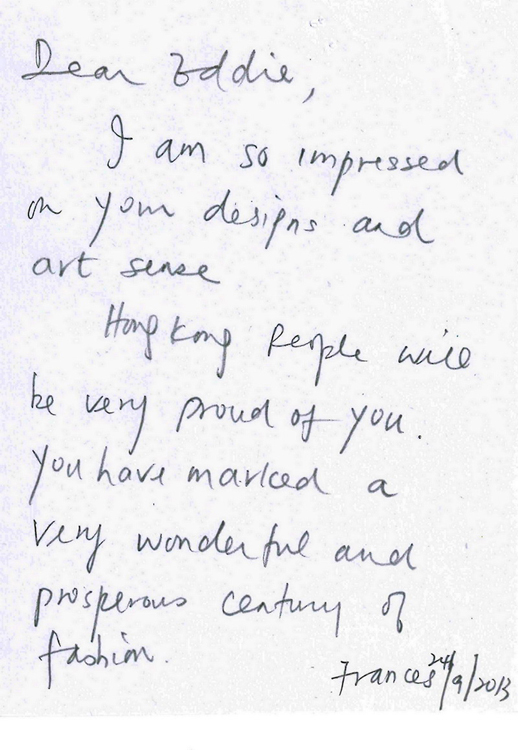 Dear Eddie,
I am so impressed
on your designs and
art sense
Hong Kong People will
be very proud of you.
You have marked a
very wonderful and
prosperous century of
fashion.
Frances 24/9/2013